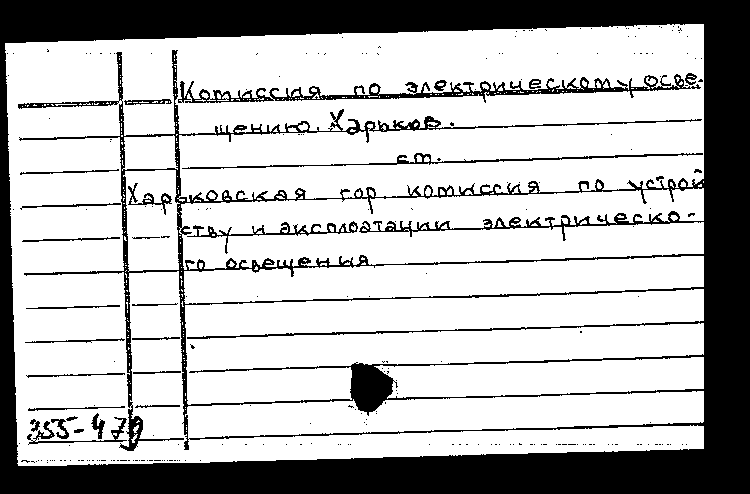 Комиссия по электрическому осве-
щению. Харьков.
см.
Харьковская гор. комиссия по устрой
ству и эксплоатации электрическо-
го освещения
355-479